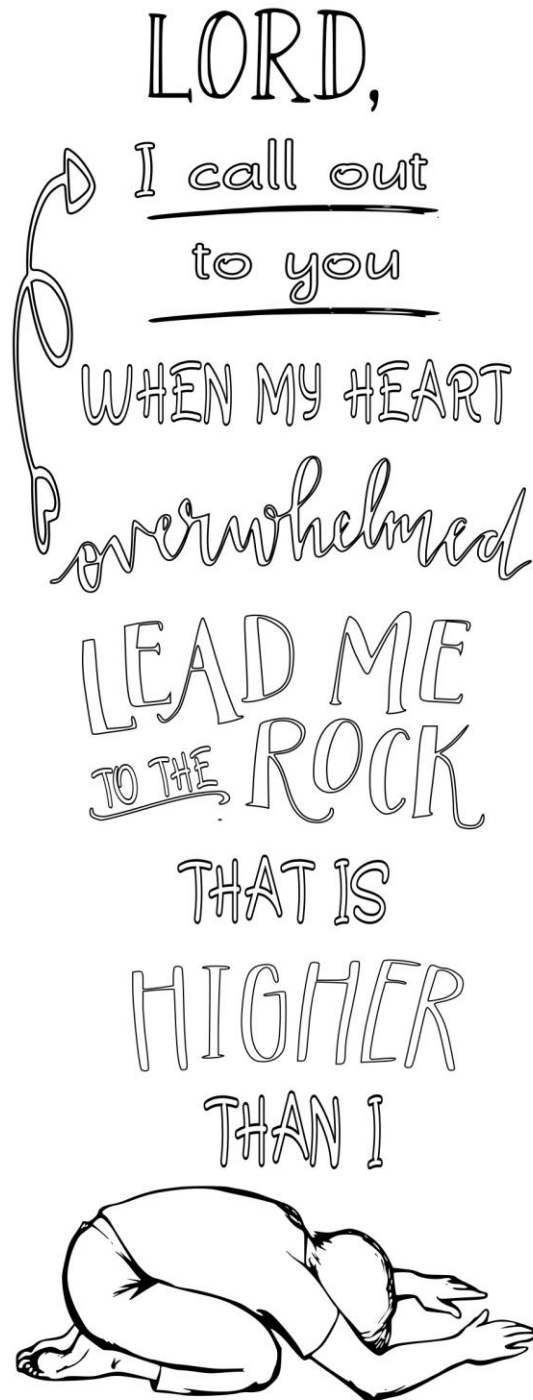 LORD,
I call out
to you
WHEN MY HEART
overwhelmed
LEAD ME
TO THE ROCK
THAT IS
HIGHER
THAN I